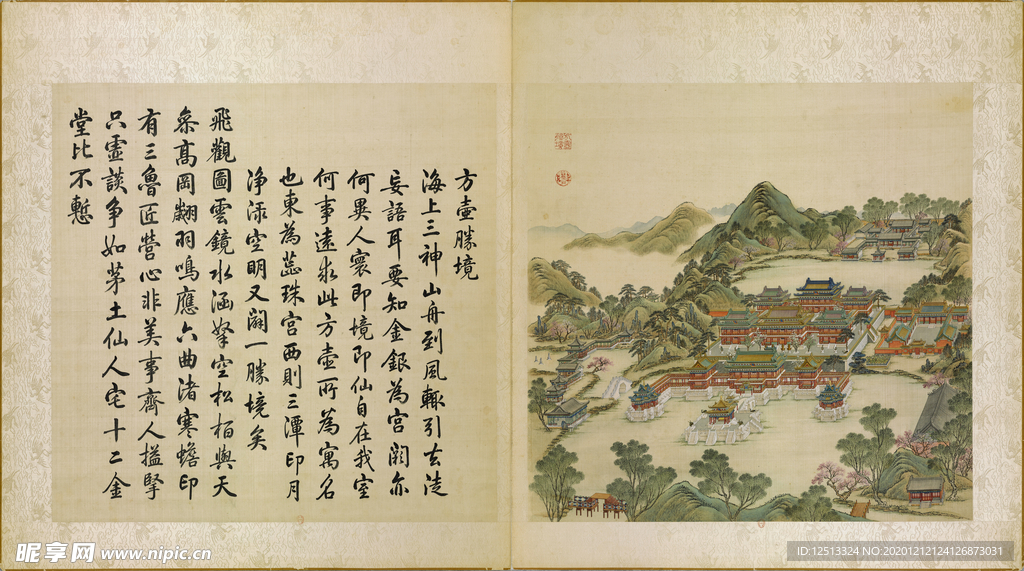 方壺勝境
海上三神山舟到風輒引去徒
妄語耳要知金銀為宮闕亦
何異人寰即境即仙自在我室
何事遠求此方壺所為寓名
也東為蕊珠宮西則三潭印月
淨渌空明又闢一勝境矣
飛觀圖雲鏡水涵拏空松栢與天
叅高岡翽羽鳴應六曲渚寒蟾印
有三魯匠營心非美事齊人搤掔
只虛談爭如茅土仙人宅十二金
堂比不慙
昵享网 www.nipic.cn
ID:12513324 NO:20201212124126873031